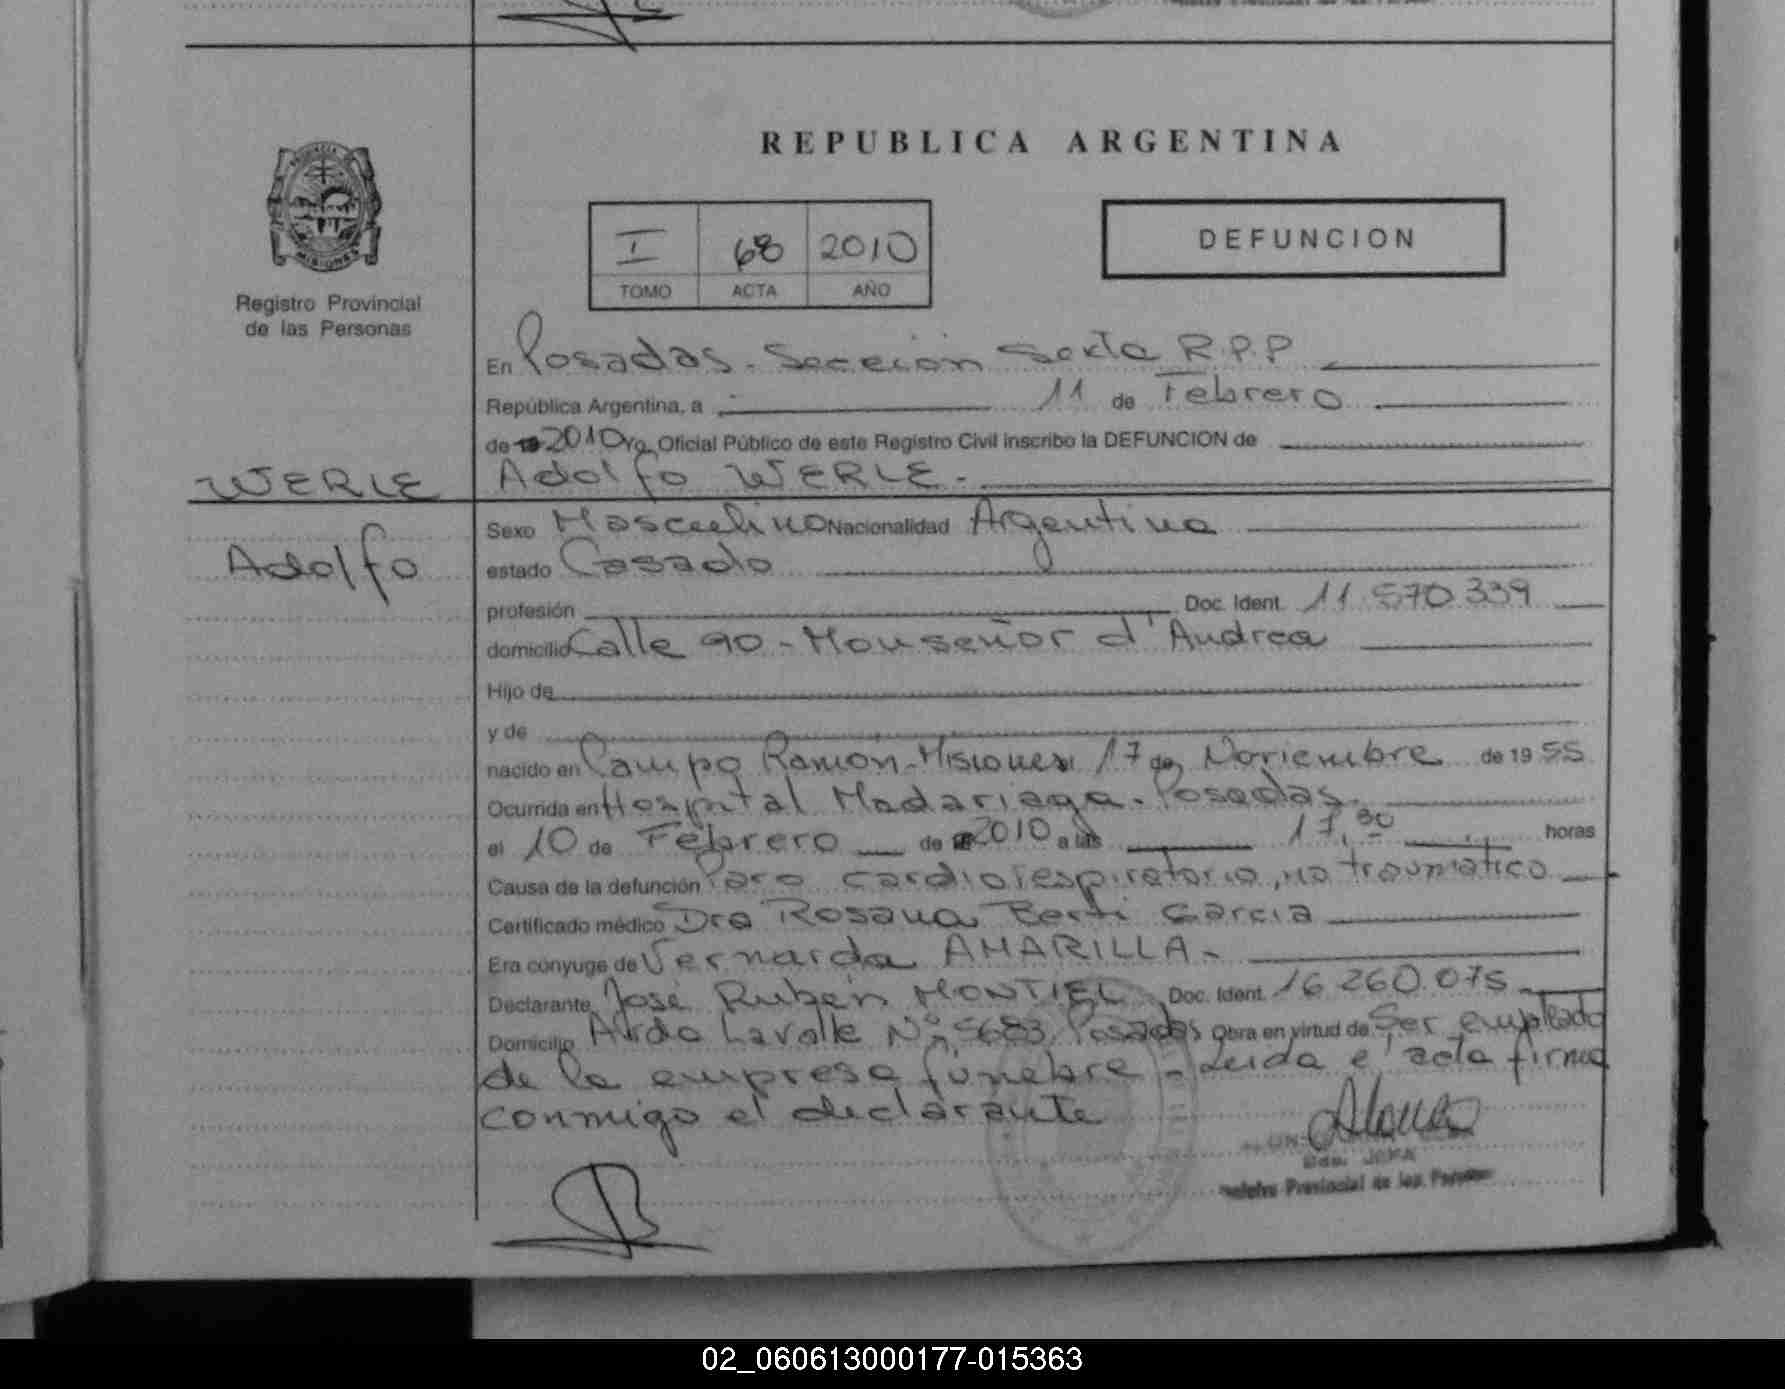 REPUBLICA ARGENTINA
PROVINCIA
MISIONES
Registro Provincial
de las Personas
I 68 2010
TOMO ACTA AÑO
DEFUNCION
En Posadas. Sección Sexta R.P.P
República Argentina, a 11 de Febrero
de 2010 Yo, Oficial Público de este Registro Civil inscribo la DEFUNCION de
WERLE Adolfo WERLE.
Adolfo
Sexo Masculino Nacionalidad Argentina
estado Casado
profesión Doc. Ident. 11.570.339
domicilio Calle 90 - Monseñor d'Andrea
Hijo de
y de
nacido en Campo Ramón-Misiones 17 de Noviembre de 1955
Ocurrida en Hospital Madariaga. Posadas.
el 10 de Febrero de 2010 a las 17,30 horas
Causa de la defunción Paro cardiorespiratorio, no traumático
Certificado médico Dra Rosana Berti Garcia
Era cónyuge de Vernarda AMARILLA.
Declarante José Rubén MONTIEL Doc. Ident. 16.260.075
Domicilio Avda Lavalle Nº 5683 Posadas Obra en virtud de Ser empleado
de la empresa fúnebre - Leida el acta firma
conmigo el declarante
Registro Provincial de las Personas
02_060613000177-015363